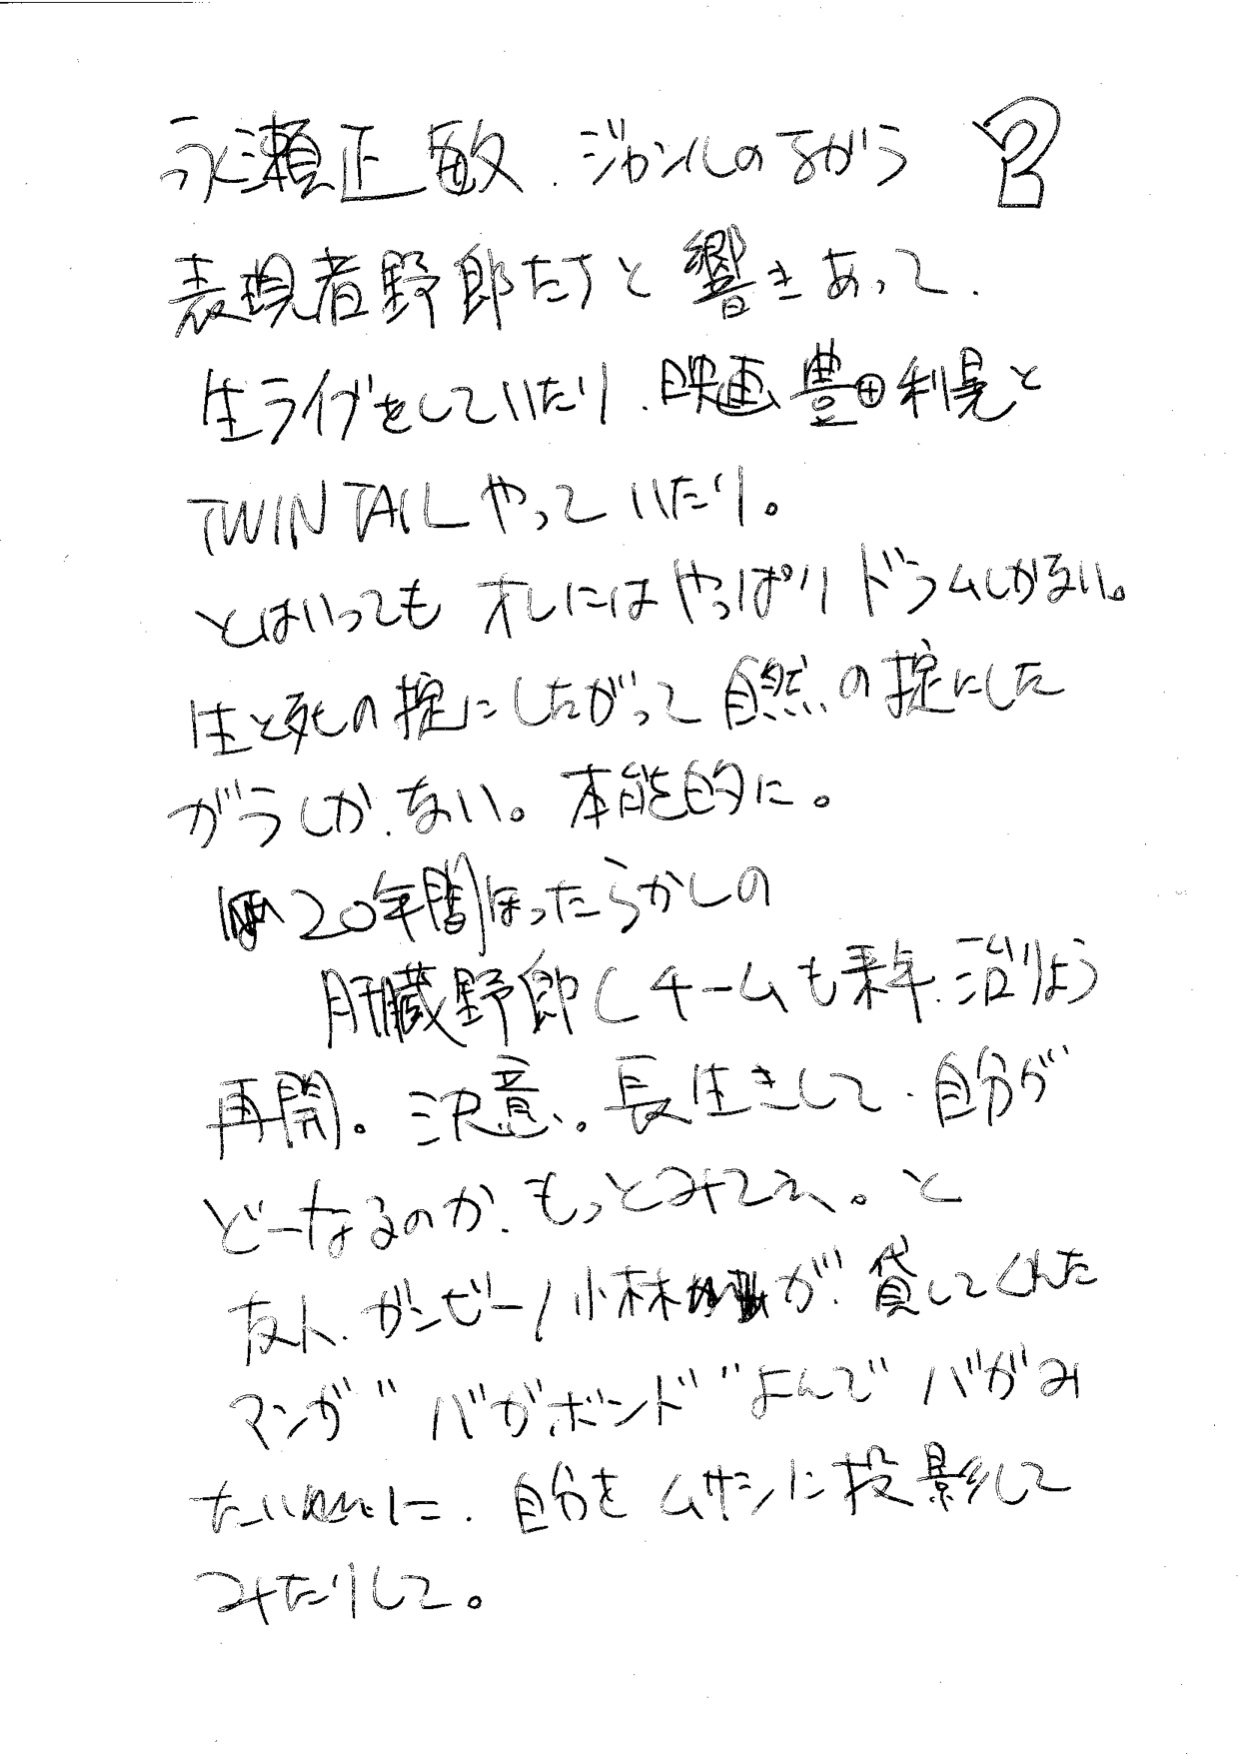 永瀬正敏、ジャンルのちがう 2
表現者野郎たちと響きあって、
生ライブをしていたり、映画豊田利晃と
TWIN TAILやっていたり。
とはいってもオレにはやっぱりドラムしかない。
生と死の掟にしたがって自然の掟にした
がうしか、ない。本能的に。
20年間ほったらかしの
肝臓野郎Cチームも来年、治りょう
再開。決意。長生きして、自分が
どーなるのか、もっとみてえ。と
友人、ガンビーノ小林が、貸してくれた
マンガ"バガボンド"よんでバガみ
たいに、自分をムサシに投影して
みたりして。